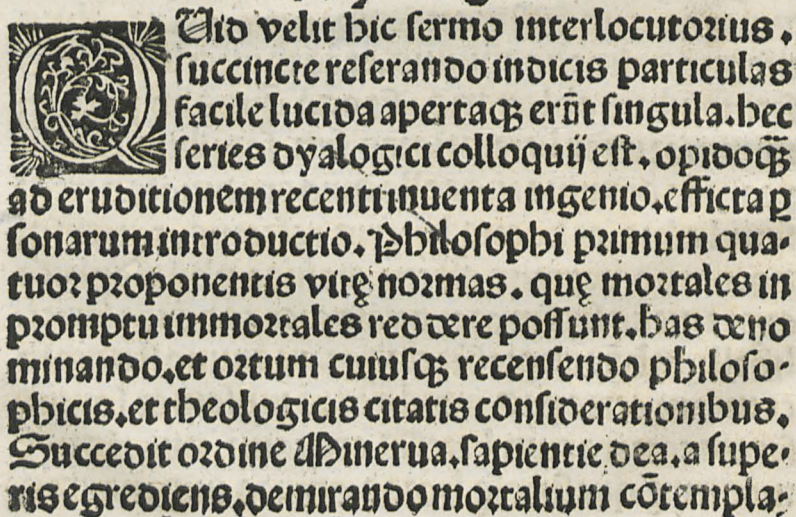 QUid velit hic sermo interlocutorius.
succincte reserando indicis particulas
facile lucida apertaqꝫ erūt singula. hec
series dyalogici colloquij est. opidoqꝫ̃
ad eruditionem recenti inuenta ingenio. efficta ꝑ
sonarum introductio. Philosophi primum qua-
tuor proponentis vitę normas. quę mortales in
promptu immortales reddere possunt. has deno
minando. et ortum cuiusqꝫ recensendo philoso-
phicis. et theologicis citatis considerationibus.
Succedit ordine Minerua. sapientie dea. a supe-
ris egrediens. demirando mortalium cōtempla-